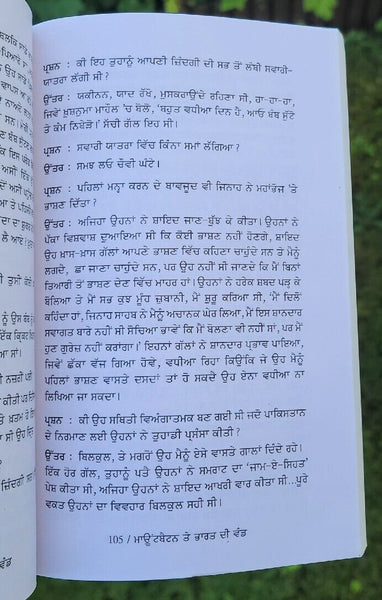 ਪ੍ਰਸ਼ਨ : ਕੀ ਇਹ ਤੁਹਾਨੂੰ ਆਪਣੀ ਜ਼ਿੰਦਗੀ ਦੀ ਸਭ ਤੋਂ ਲੰਬੀ ਸਵਾਰੀ-
ਯਾਤਰਾ ਲੱਗੀ ਸੀ ?
ਉੱਤਰ : ਯਕੀਨਨ, ਯਾਦ ਰੱਖੋ, ਮੁਸਕਰਾਉਂਦੇ ਰਹਿਣਾ ਸੀ, ਹਾ-ਹਾ-ਹਾ,
ਜਿਵੇਂ ਖ਼ੁਸ਼ਨੁਮਾ ਮਾਹੌਲ 'ਚ ਬੋਲੋਂ, 'ਬਹੁਤ ਵਧੀਆ ਦਿਨ ਹੈ, ਆਓ ਬੰਬ ਸੁੱਟੋ
ਤੇ ਕੰਮ ਨਿਬੇੜੋ।' ਸੱਚੀ ਗੱਲ ਇਹ ਸੀ।
ਪ੍ਰਸ਼ਨ : ਸਵਾਰੀ ਯਾਤਰਾ ਵਿੱਚ ਕਿੰਨਾ ਸਮਾਂ ਲੱਗਿਆ ?
ਉੱਤਰ : ਸਮਝ ਲਓ ਚੌਵੀ ਘੰਟੇ।
ਪ੍ਰਸ਼ਨ : ਪਹਿਲਾਂ ਮਨ੍ਹਾ ਕਰਨ ਦੇ ਬਾਵਜੂਦ ਵੀ ਜਿਨਾਹ ਨੇ ਮਹਾਂਭੋਜ 'ਤੇ
ਭਾਸ਼ਣ ਦਿੱਤਾ ?
ਉੱਤਰ : ਅਜਿਹਾ ਉਹਨਾਂ ਨੇ ਸ਼ਾਇਦ ਜਾਣ-ਬੁੱਝ ਕੇ ਕੀਤਾ। ਉਹਨਾਂ ਨੇ
ਪੱਕਾ ਵਿਸ਼ਵਾਸ਼ ਦੁਆਇਆ ਸੀ ਕਿ ਕੋਈ ਭਾਸ਼ਣ ਨਹੀਂ ਹੋਣਗੇ, ਸ਼ਾਇਦ
ਉਹ ਖ਼ਾਸ-ਖ਼ਾਸ ਗੱਲਾਂ ਆਪਣੇ ਭਾਸ਼ਣ ਵਿੱਚ ਕਹਿਣਾ ਚਾਹੁੰਦੇ ਸਨ ਤੇ ਮੈਨੂੰ
ਲਗਦੈ, ਛਾ ਜਾਣਾ ਚਾਹੁੰਦੇ ਸਨ, ਪਰ ਉਹ ਨਹੀਂ ਸੀ ਜਾਣਦੇ ਕਿ ਮੈਂ ਬਿਨਾਂ
ਤਿਆਰੀ ਤੋਂ ਭਾਸ਼ਣ ਦੇਣ ਵਿੱਚ ਮਾਹਰ ਹਾਂ। ਉਹਨਾਂ ਨੇ ਹਰੇਕ ਸ਼ਬਦ ਪੜ੍ਹ ਕੇ
ਬੋਲਿਆ ਤੇ ਮੈਂ ਸਭ ਕੁਝ ਮੂੰਹ ਜ਼ੁਬਾਨੀ, ਮੈਂ ਸ਼ੁਰੂ ਕਰਿਆ ਸੀ, 'ਮੈਂ ਦਿਲੋਂ
ਕਹਿੰਦਾ ਹਾਂ, ਜਿਨਾਹ ਸਾਹਬ ਨੇ ਮੈਨੂੰ ਅਚਾਨਕ ਘੇਰ ਲਿਆ, ਮੈਂ ਇਸ ਸ਼ਾਨਦਾਰ
ਸਵਾਗਤ ਬਾਰੇ ਨਹੀਂ ਸੀ ਸੋਚਿਆ ਭਾਵੇਂ ਕਿ ਮੈਂ ਬੋਲਣਾ ਵੀ ਨਹੀਂ ਸਾਂ, ਪਰ ਮੈਂ
ਹੁਣ ਗੁਰੇਜ਼ ਨਹੀਂ ਕਰਾਂਗਾ।' ਇਹਨਾਂ ਗੱਲਾਂ ਨੇ ਸ਼ਾਨਦਾਰ ਪ੍ਰਭਾਵ ਪਾਇਆ,
ਜਿਵੇਂ ਛੱਕਾ ਵੱਜ ਗਿਆ ਹੋਵੇ, ਵਧੀਆ ਰਿਹਾ ਕਿਉਂਕਿ ਜੇ ਉਹ ਮੈਨੂੰ
ਪਹਿਲਾਂ ਭਾਸ਼ਣ ਵਾਸਤੇ ਦਸਦਾਂ ਤਾਂ ਹੋ ਸਕਦੈ ਉਹ ਏਨਾ ਵਧੀਆ ਨਾ
ਲਿਖਿਆ ਜਾ ਸਕਦਾ।
ਪ੍ਰਸ਼ਨ : ਕੀ ਉਹ ਸਥਿਤੀ ਵਿਅੰਗਾਤਮਕ ਬਣ ਗਈ ਸੀ ਜਦੋਂ ਪਾਕਿਸਤਾਨ
ਦੇ ਨਿਰਮਾਣ ਲਈ ਉਹਨਾਂ ਨੇ ਤੁਹਾਡੀ ਪ੍ਰਸੰਸਾ ਕੀਤੀ ?
ਉੱਤਰ : ਬਿਲਕੁਲ, ਤੇ ਮਗਰੋਂ ਉਹ ਮੈਨੂੰ ਏਸੇ ਵਾਸਤੇ ਗਾਲਾਂ ਦਿੰਦੇ ਰਹੇ।
ਇੱਕ ਹੋਰ ਗੱਲ, ਤੁਹਾਨੂੰ ਪਤੈ ਉਹਨਾਂ ਨੇ ਸਮਰਾਟ ਦਾ 'ਜਾਮ-ਏ-ਸਿਹਤ'
ਪੇਸ਼ ਕੀਤਾ ਸੀ, ਅਜਿਹਾ ਉਹਨਾਂ ਨੇ ਸ਼ਾਇਦ ਆਖ਼ਰੀ ਵਾਰ ਕੀਤਾ ਸੀ...ਪੂਰੇ
ਵਕਤ ਉਹਨਾਂ ਦਾ ਵਿਵਹਾਰ ਬਿਲਕੁਲ ਸਹੀ ਸੀ।
105 / ਮਾਊਂਟਬੈਟਨ ਤੇ ਭਾਰਤ ਦੀ ਵੰਡ